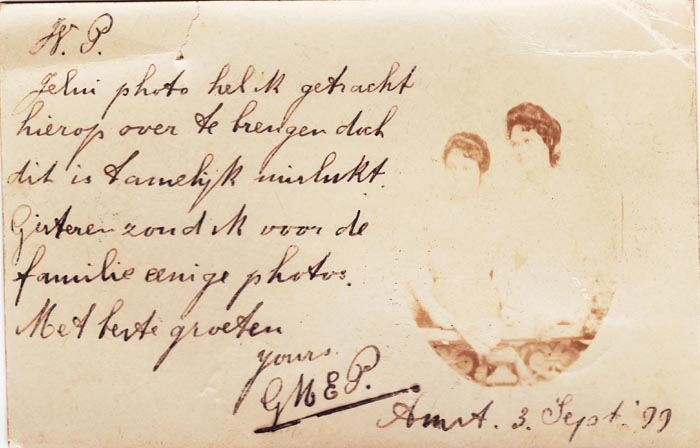 W. P.
photo heb ik getracht
hierop over te brengen doch
dit is tamelijk mislukt.
Gisteren zond ik voor de
familie eenige photos.
Met beste groeten
yours
G M E P.
Amst. 3. Sept. 99